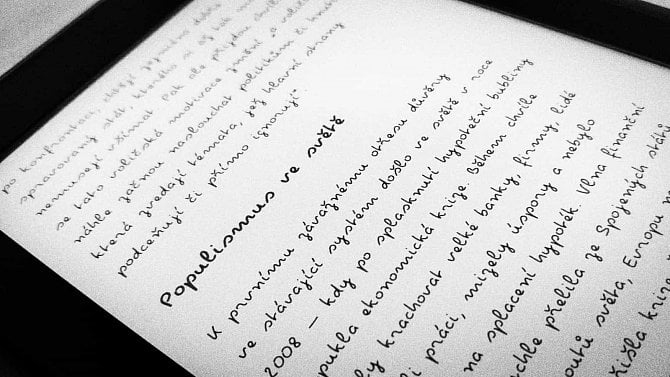 po konfrontaci, chtějí zejména dobře
spravovaný stát, kterého si až tak moc
nemusejí všímat. Pak ale přijdou chvíle,
se tato voličská motivace změní a voliči
náhle začnou naslouchat politikům či hnutím
která zvedají témata, jež hlavní strany
podceňují či přímo ignorují."
Populismus ve světě
K prvnímu závažnému otřesu důvěry
ve stávající systém došlo ve světě v roce
2008 – kdy po splasknutí hypoteční bubliny
pukla ekonomická krize. Během chvíle
ly krachovat velké banky, firmy, lidé
li práci, mizely úspory a nebylo
na splacení hypoték. Vlna finanční
chle přelila ze Spojených států
outů světa, Evropu n
išla krize